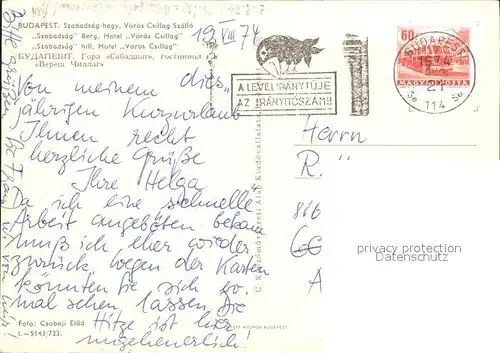 BUDAPEST. Szabadság-hegy, Vörös Csillag Szálló
„Szabadság" Berg, Hotel „Vörös Csillag"
„Szabadság" hill, Hotel „Vörös Csillag"
БУДАПЕШТ. Гора «Сабадшаг», гостиница
«Вереш Чиллаг»
19. VIII 74
A LEVÉL IRÁNYTŰJE
AZ IRÁNYÍTÓSZÁM!!
60
MAGYAR POSTA
BUDAPEST
1974
21
5a 114 5a
Von meinem dies-
jährigen Kurzurlaub
Ihnen recht
herzliche Grüße
Ihre Helga
Da ich eine schnelle
Arbeit angeboten bekam
muß ich eher wieder
zurück, wegen der Karten
könnten Sie sich so.
mal sehen lassen. Die
Hitze ist hier
ungeheuerlich!
Herrn
R.
A
privacy protection
oldthing.com
Bitte grüßen Sie Frau
von mir!
© Képzőművészeti Alap Kiadóvállalata,
Foto: Csobaji Előd
I.—5143/723.